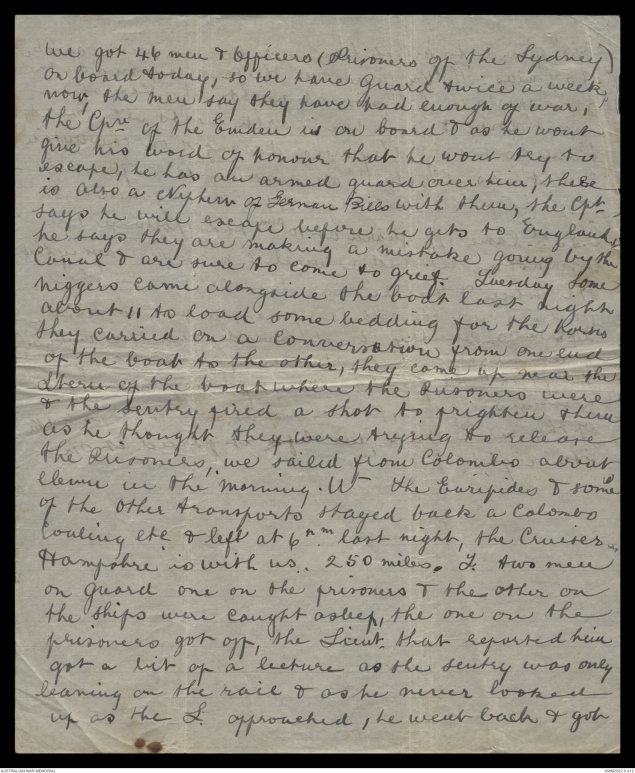 we got 46 men & Officers (Prisoners of the Sydney)
on board today, so we have Guard twice a week
now, the men say they have had enough of war,
the Cpn of the Emden is on board & as he wont
give his word of honour that he wont try to
escape, he has an armed guard over him, there
is also a Nephew of German Bills with them, the Cpt
says he will escape before he gets to England &
he says they are making a mistake going by the
Canal & are sure to come to grief. Tuesday some
niggers came alongside the boat last night
about 11 to load some bedding for the horses
they carried on a conversation from one end
of the boat to the other, they came up near the
stern of the boat where the Prisoners were
& the sentry fired a shot to frighten them
as he thought they were trying to release
the Prisoners, we sailed from Colombo about
eleven in the morning. W the Euripides & some
of the other transports stayed back a Colombo
Coaling etc & left at 6 pm last night, the Cruiser
Hampshire is with us. 250 miles. F. two men
on guard one on the prisoners & the other on
the ships were caught asleep, the one on the
prisoners got off, the Lieut. that reported him
got a bit of a lecture as the sentry was only
leaning on the rail & as he never looked
up as the L. approached, he went back & got
AUSTRALIAN WAR MEMORIAL